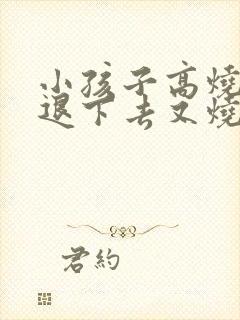 小孩子高燒
退下去又燒
君約